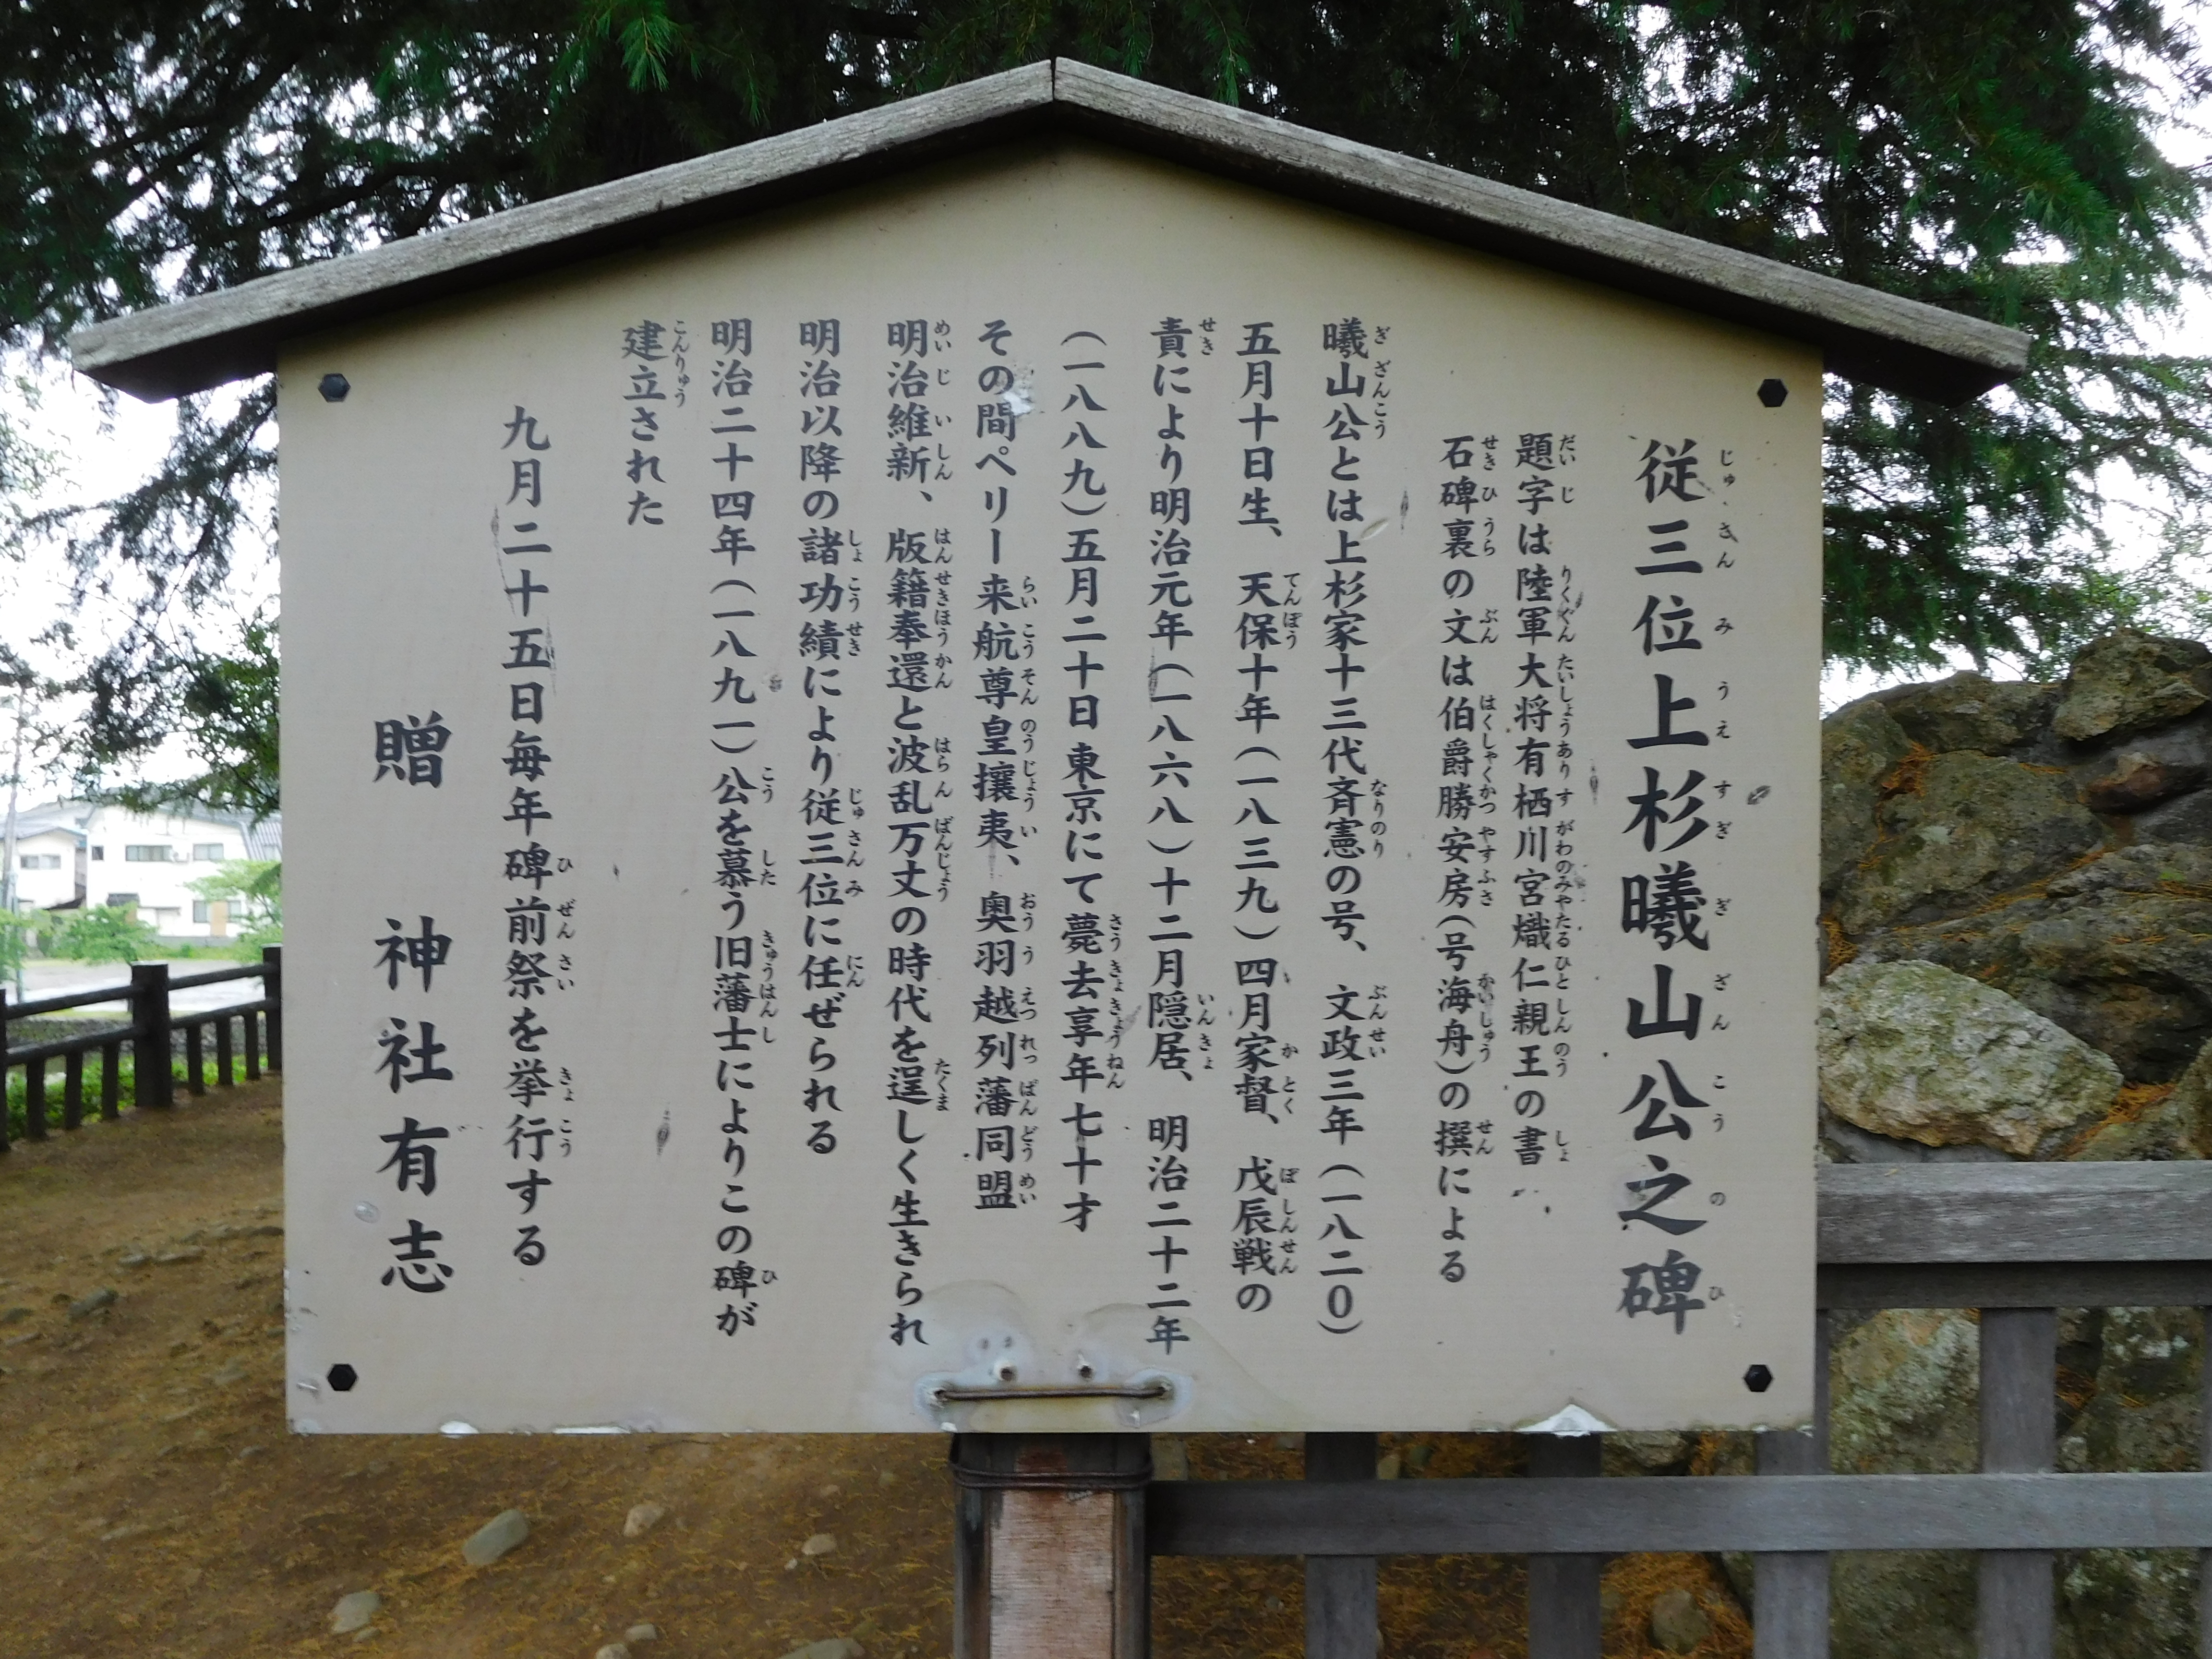 従三位上杉曦山公之碑
題字は陸軍大将有栖川宮熾仁親王の書
石碑裏の文は伯爵勝安房(号海舟)の撰による
曦山公とは上杉家十三代斉憲の号、文政三年(一八二〇)
五月十日生、天保十年(一八三九)四月家督、戊辰戦の
責により明治元年(一八六八)十二月隠居、明治二十二年
(一八八九)五月二十日東京にて薨去享年七十才
その間ペリー来航尊皇攘夷、奥羽越列藩同盟
明治維新、版籍奉還と波乱万丈の時代を逞しく生きられ
明治以降の諸功績により従三位に任ぜられる
明治二十四年(一八九一)公を慕う旧藩士によりこの碑が
建立された
九月二十五日毎年碑前祭を挙行する
贈 神社有志